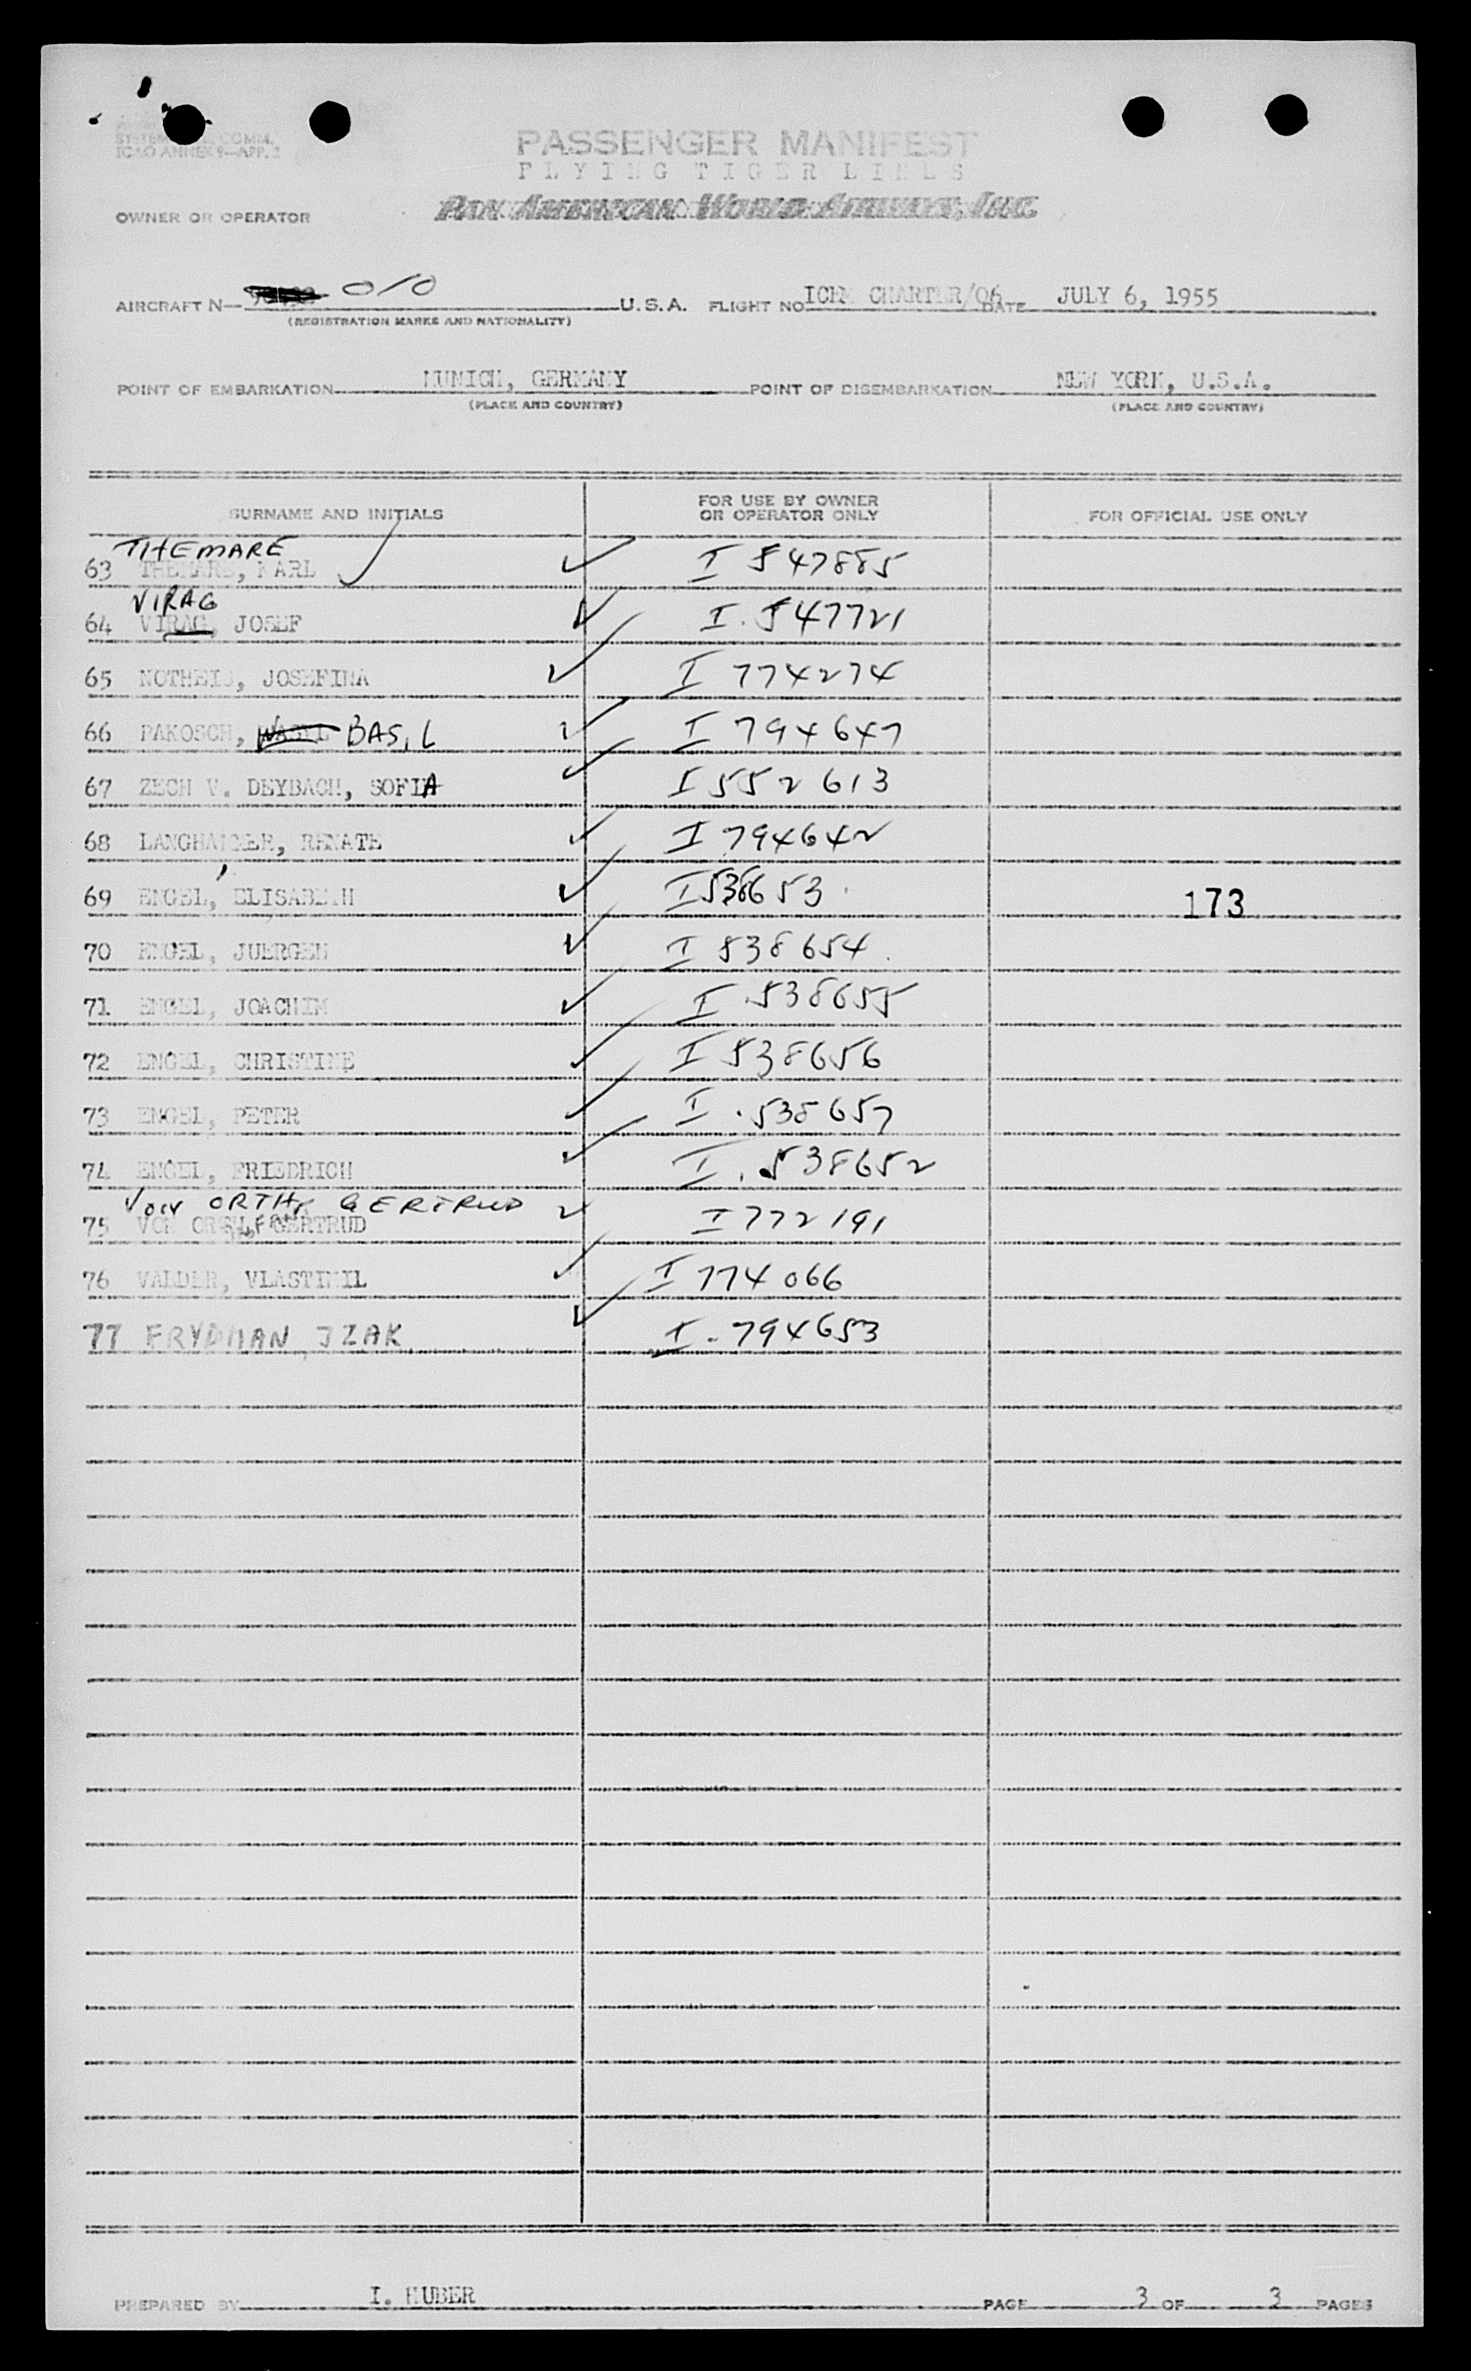 SYSTEM COMM.
ICAO ANNEX 9—APP. 2
PASSENGER MANIFEST
FLYING TIGER LINES
OWNER OR OPERATOR PAN AMERICAN WORLD AIRWAYS, INC.
AIRCRAFT N— 010 U.S.A. FLIGHT NO ICEM CHARTER/06 DATE JULY 6, 1955
(REGISTRATION MARKS AND NATIONALITY)
POINT OF EMBARKATION MUNICH, GERMANY POINT OF DISEMBARKATION NEW YORK, U.S.A.
(PLACE AND COUNTRY) (PLACE AND COUNTRY)
SURNAME AND INITIALS FOR USE BY OWNER OR OPERATOR ONLY FOR OFFICIAL USE ONLY
THEMARE
63 THEMARE, KARL I 547885
VIRAG
64 VIRAG, JOSEF I. 547721
65 NOTHEIS, JOSEFINA I 774274
66 PAKOSCH, WASYL BASIL I 794647
67 ZECH V. DEYBACH, SOFIA I 552613
68 LANGHAMMER, RENATE I 794642
69 ENGEL, ELISABETH I 538653 173
70 ENGEL, JUERGEN I 538654
71 ENGEL, JOACHIM I 538655
72 ENGEL, CHRISTINE I 538656
73 ENGEL, PETER I 538657
74 ENGEL, FRIEDRICH I 538652
VON ORTH, GERTRUD
75 VON GERTRUD I 772191
76 VALDER, VLASTIMIL I 774066
77 FRYDMAN, IZAK I-794653
PREPARED BY I. HUBER PAGE 3 OF 3 PAGES